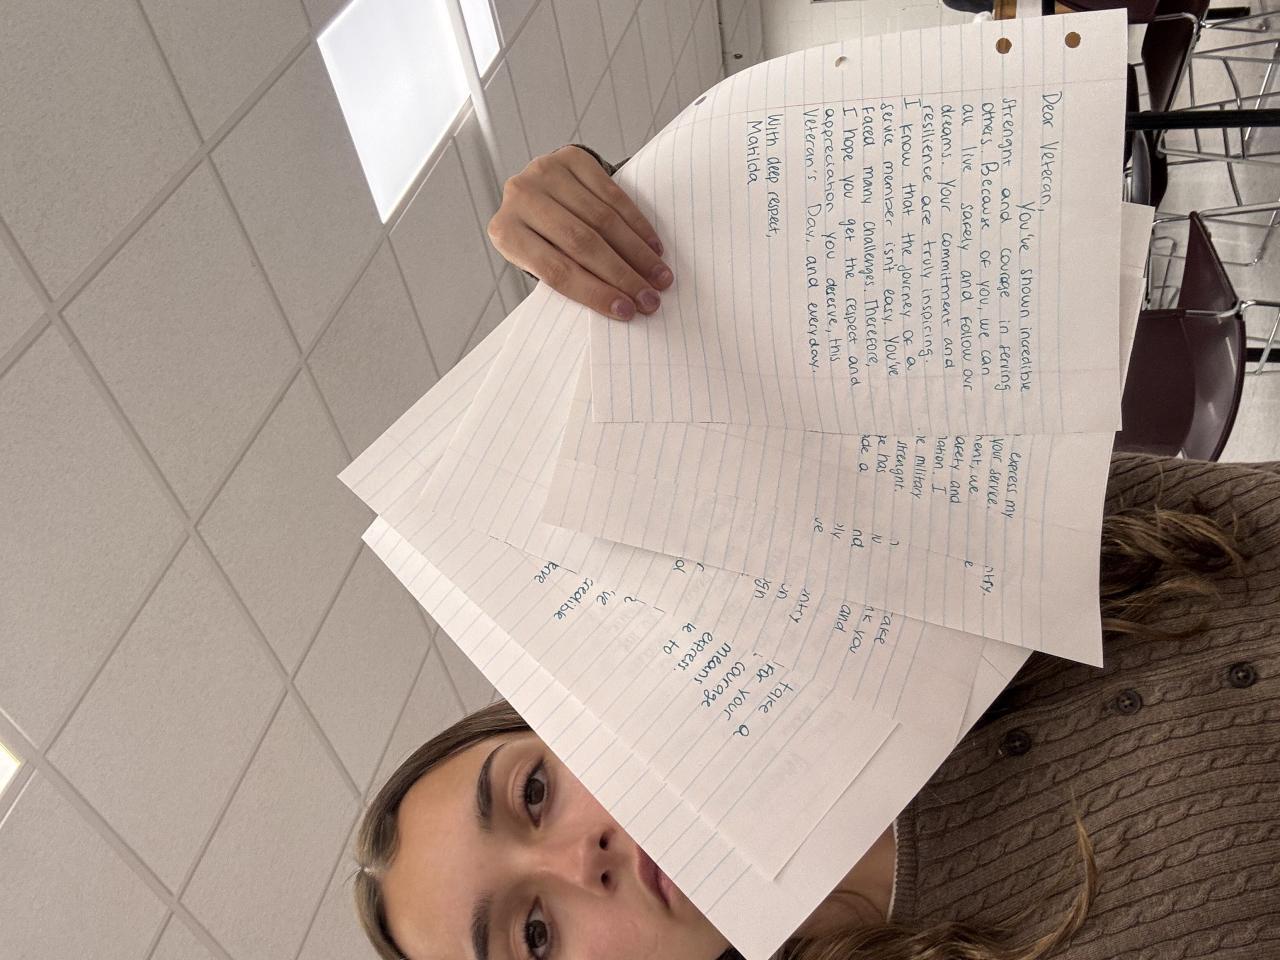 Dear Veteran,
You've shown incredible
strenght and courage in serving
others. Because of you, we can
all live safely and follow our
dreams. Your commitment and
resilience are truly inspiring.
I know that the journey of a
service member isn't easy. You've
faced many challenges. Therefore,
I hope you get the respect and
appreciation you deserve, this
Veteran's Day, and everyday.
With deep respect,
Matilda
express my
your service.
ment, we
afety and
ation. I
military
strenght.
has
de a
try.
e
nd
ly
ve
take
you
and
ntry
in
take a
for your
courage
means
express.
to
redible